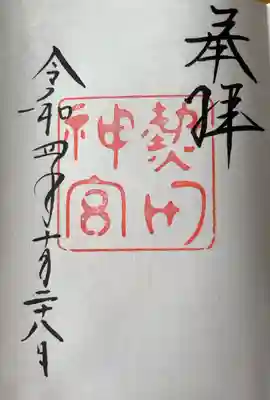 奉拝
熱田
神宮
令和四年十月二十八日